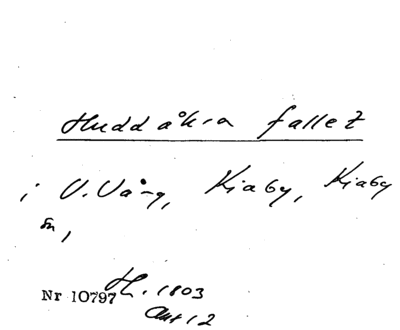 Huddåkra fallet
i V. Vång, Kiaby, Kiaby
sn,
Nr 10797 H. 1803
Ant 12